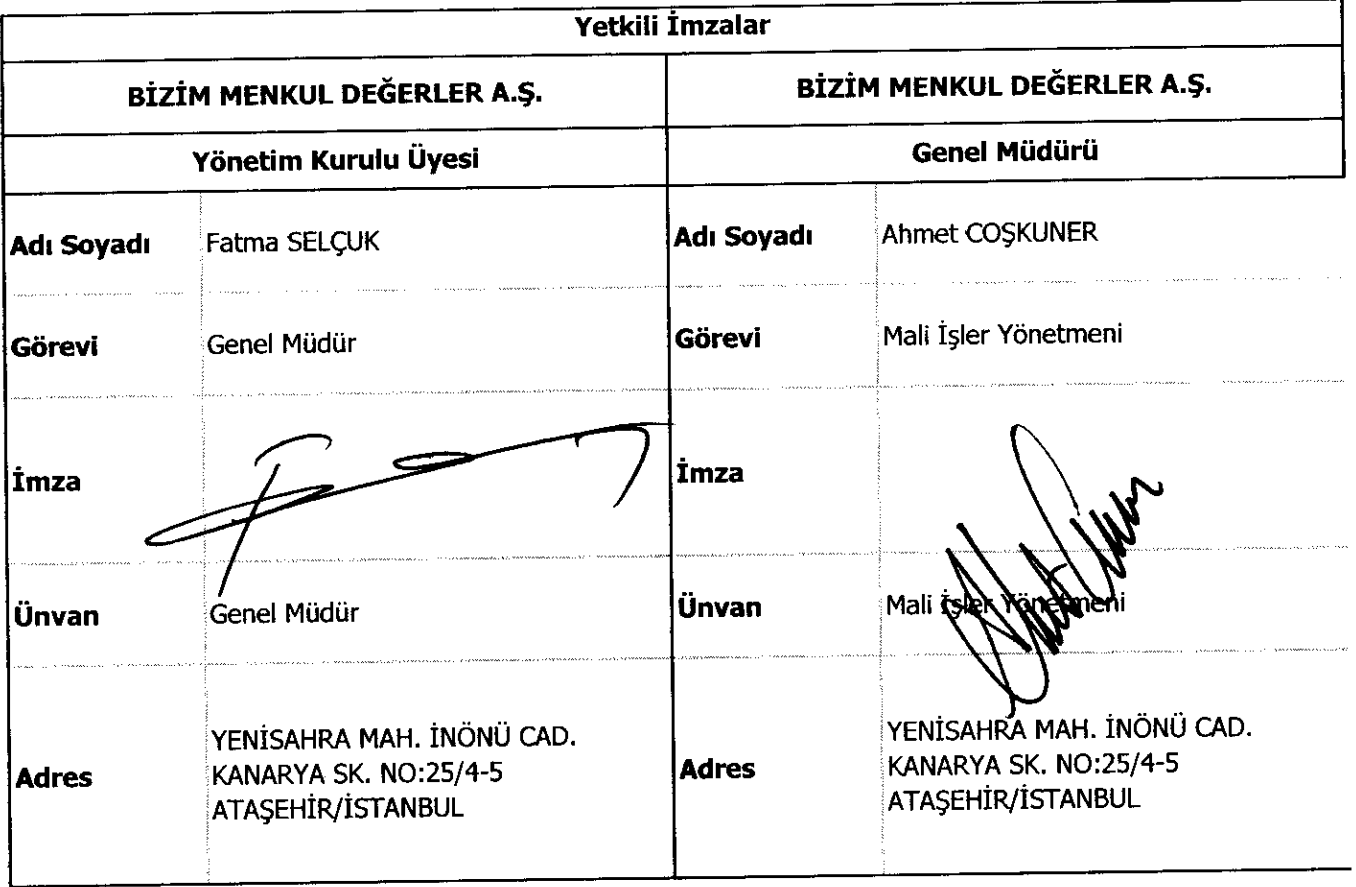 Yetkili İmzalar
BİZİM MENKUL DEĞERLER A.Ş. BİZİM MENKUL DEĞERLER A.Ş.
Yönetim Kurulu Üyesi Genel Müdürü
Adı Soyadı Fatma SELÇUK Adı Soyadı Ahmet COŞKUNER
Görevi Genel Müdür Görevi Mali İşler Yönetmeni
İmza İmza
Ünvan Genel Müdür Ünvan Mali İşler Yönetmeni
Adres YENİSAHRA MAH. İNÖNÜ CAD. Adres YENİSAHRA MAH. İNÖNÜ CAD.
KANARYA SK. NO:25/4-5 KANARYA SK. NO:25/4-5
ATAŞEHİR/İSTANBUL ATAŞEHİR/İSTANBUL